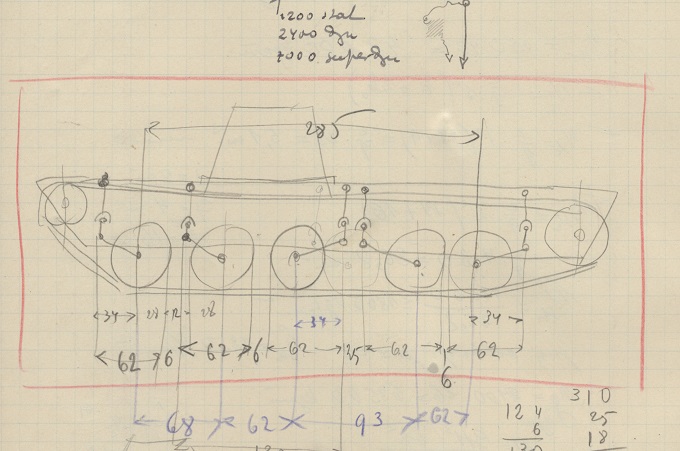 1200 stal
2400 dzu
7000 superdzu
285
34 28 12 28 34 34
62 6 62 6 62 25 62 62
6
68 62 93 62
124 310
6 25
130 18